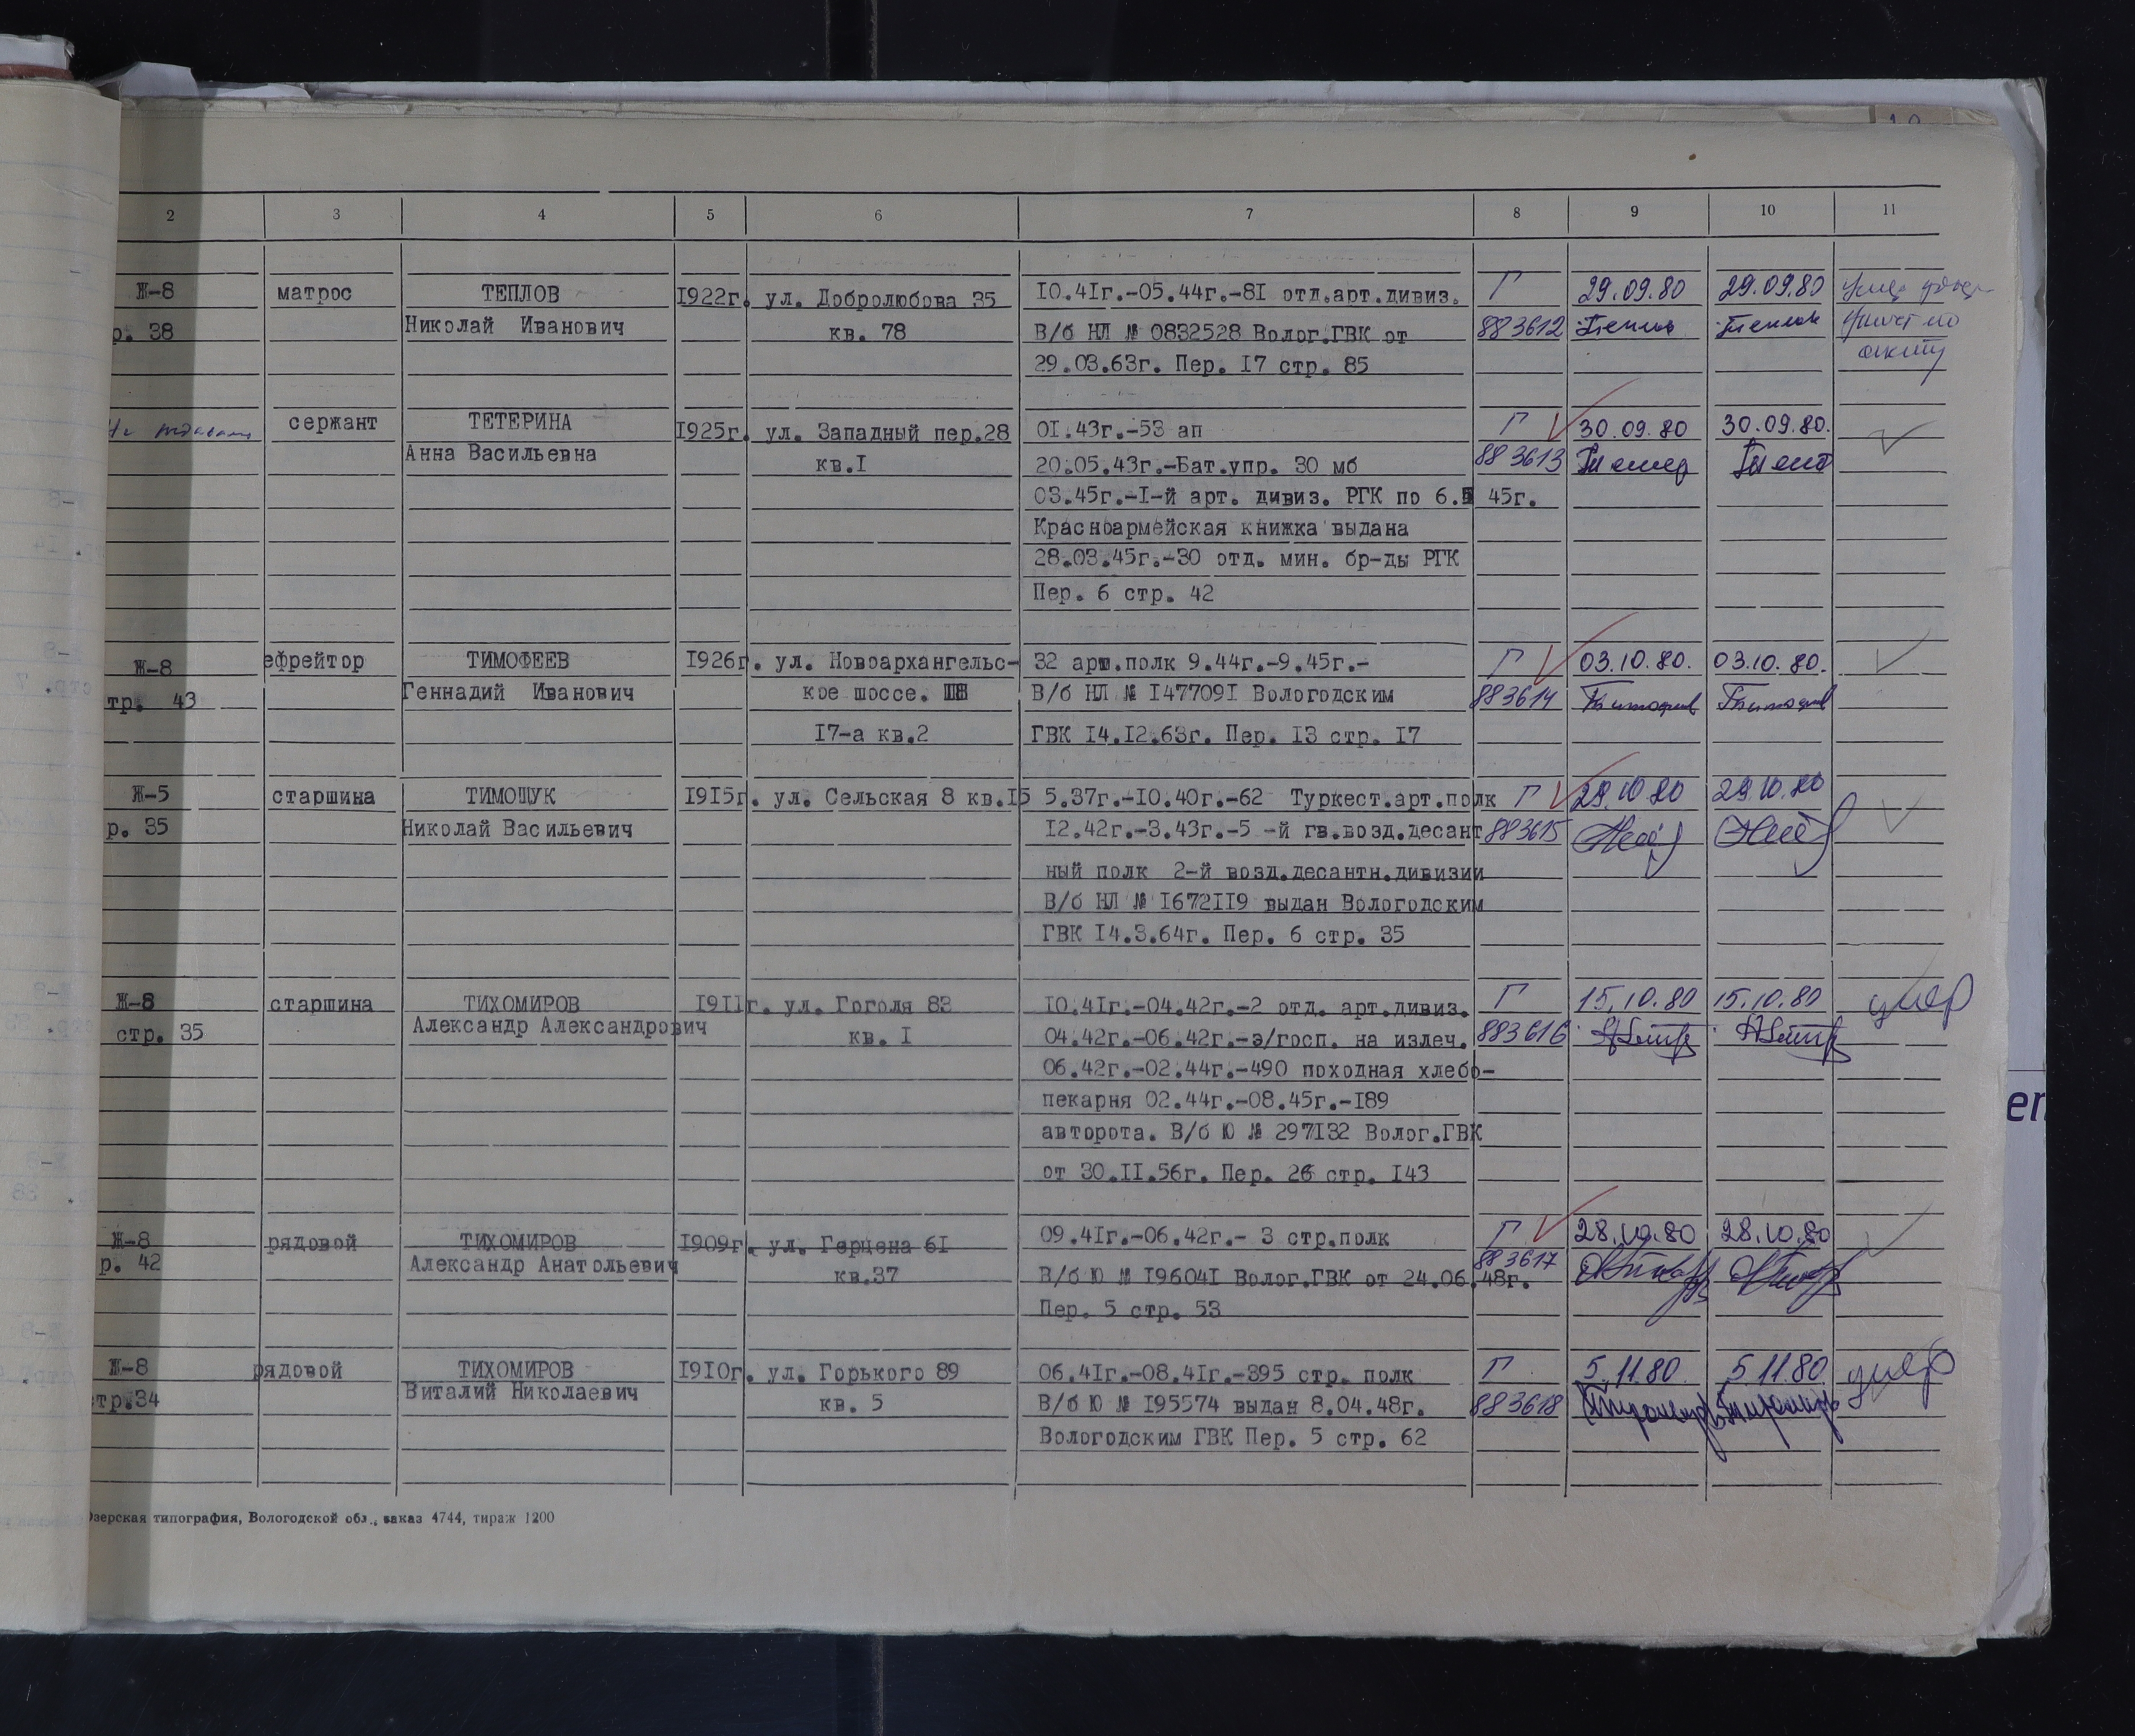 2 3 4 5 6 7 8 9 10 11
Ж-8 матрос ТЕПЛОВ 1922г. ул. Добролюбова 35 10.41г.-05.44г.-81 отд.арт.дивиз. Г 29.09.80 29.09.80
р. 38 Николай Иванович кв. 78 В/б НЛ № 0832528 Волог.ГВК от 883612 Теплов Теплов
29.03.63г. Пер. 17 стр. 85
сержант ТЕТЕРИНА 1925г. ул. Западный пер.28 01.43г.-53 ап Г 30.09.80 30.09.80.
Анна Васильевна кв.1 20.05.43г.-Бат.упр. 30 мб 883613
03.45г.-1-й арт. дивиз. РГК по 6. 45г.
Красноармейская книжка выдана
28.03.45г.-30 отд. мин. бр-ды РГК
Пер. 6 стр. 42
Ж-8 ефрейтор ТИМОФЕЕВ 1926г. ул. Новоархангельс- 32 арт.полк 9.44г.-9.45г.- Г 03.10.80. 03.10.80.
тр. 43 Геннадий Иванович кое шоссе. В/б НЛ № 1477091 Вологодским 883614
17-а кв.2 ГВК 14.12.63г. Пер. 13 стр. 17
Ж-5 старшина ТИМОЩУК 1915г. ул. Сельская 8 кв.15 5.37г.-10.40г.-62 Туркест.арт.полк Г 29.10.80 29.10.80
р. 35 Николай Васильевич 12.42г.-3.43г.-5 -й гв.возд.десант 883615
ный полк 2-й возд.десантн.дивизии
В/б НЛ № 1672119 выдан Вологодским
ГВК 14.3.64г. Пер. 6 стр. 35
Ж-8 старшина ТИХОМИРОВ 1911г. ул. Гоголя 83 10.41г.-04.42г.-2 отд. арт.дивиз. Г 15.10.80 15.10.80 умер
стр. 35 Александр Александрович кв. 1 04.42г.-06.42г.-э/госп. на излеч. 883616
06.42г.-02.44г.-490 походная хлебо-
пекарня 02.44г.-08.45г.-189
авторота. В/б Ю № 297132 Волог.ГВК
от 30.11.56г. Пер. 26 стр. 143
Ж-8 рядовой ТИХОМИРОВ 1909г. ул. Герцена 61 09.41г.-06.42г.- 3 стр.полк Г 28.10.80 28.10.80
р. 42 Александр Анатольевич кв.37 В/б Ю № 196041 Волог.ГВК от 24.06.48г. 883617
Пер. 5 стр. 53
Ж-8 рядовой ТИХОМИРОВ 1910г. ул. Горького 89 06.41г.-08.41г.-395 стр. полк Г 5.11.80. 5.11.80. умер
стр.34 Виталий Николаевич кв. 5 В/б Ю № 195574 выдан 8.04.48г. 883618
Вологодским ГВК Пер. 5 стр. 62
Озерская типография, Вологодской обл., заказ 4744, тираж 1200